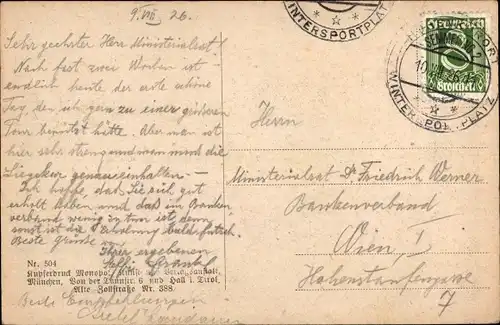 9. VIII 26.
Sehr geehrter Herr Ministerialrat!
Nach fast zwei Wochen ist
endlich heute der erste schöne
Tag den ich gern zu einer größeren
Tour benützt hätte. Aber man ist
hier sehr streng und man muß die
Liegekur genau einhalten. —
Ich hoffe, daß Sie sich gut
erholt haben und daß im Banken
verband wenig zu tun ist, denn
sonst ist die Erholung bald futsch.
Beste Grüße von
Ihrer ergebenen
Nr. 504
Kupferdruck Monopol
München, Von der Tannstr. 6 und Hall i. Tirol,
Alte Zollstraße Nr. 388.
Beste Empfehlungen
WINTERSPORTPLATZ
10.VIII.26
WINTERSPORTPLATZ
Groschen
Herrn
Ministerialrat Dr Friedrich Werner
Bankenverband
Wien, I
Hohenstaufengasse
7